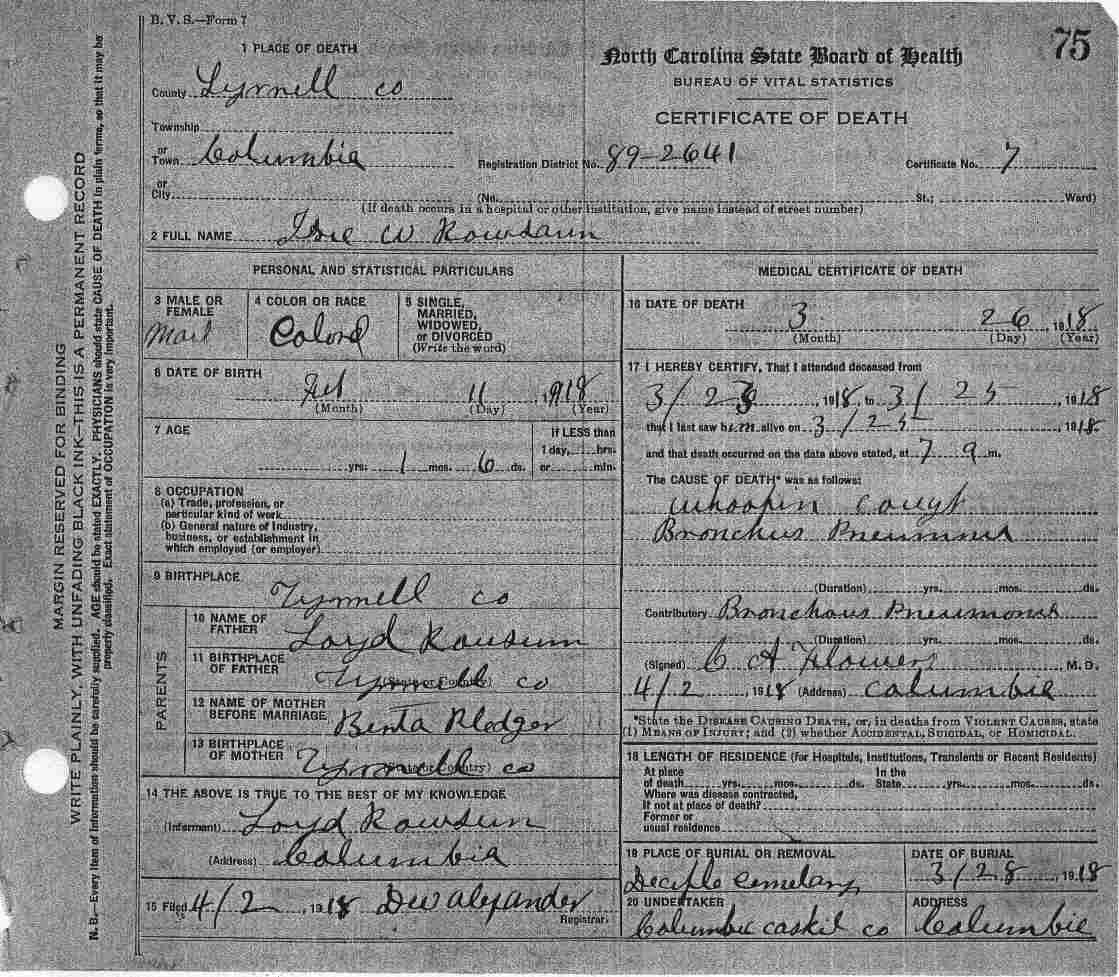 B. V. S.—Form 7
75
North Carolina State Board of Health
BUREAU OF VITAL STATISTICS
CERTIFICATE OF DEATH
1 PLACE OF DEATH
County Tyrrell co
Township
or Town Columbia Registration District No. 89-2641 Certificate No. 7
or City (No. St.; Ward)
(If death occurs in a hospital or other institution, give name instead of street number)
2 FULL NAME W
PERSONAL AND STATISTICAL PARTICULARS
3 MALE OR FEMALE Mail
4 COLOR OR RACE Colord
5 SINGLE, MARRIED, WIDOWED, or DIVORCED (Write the word)
6 DATE OF BIRTH Feb 11, 1918
(Month) (Day) (Year)
7 AGE
yrs. 1 mos. 6 ds.
If LESS than 1 day, hrs. or min.
8 OCCUPATION
(a) Trade, profession, or particular kind of work
(b) General nature of Industry, business, or establishment in which employed (or employer)
9 BIRTHPLACE Tyrrell co
PARENTS
10 NAME OF FATHER Loyd
11 BIRTHPLACE OF FATHER Tyrrell co
(State or Country)
12 NAME OF MOTHER BEFORE MARRIAGE Pledger
13 BIRTHPLACE OF MOTHER Tyrrell co
(State or Country)
14 THE ABOVE IS TRUE TO THE BEST OF MY KNOWLEDGE
(Informant) Loyd
(Address) Columbia
15 Filed 4/2, 1918 Alexander
Registrar.
MEDICAL CERTIFICATE OF DEATH
16 DATE OF DEATH 3 26, 1918
(Month) (Day) (Year)
17 I HEREBY CERTIFY, That I attended deceased from
3/23, 1918, to 3/25, 1918
that I last saw him alive on 3/25, 1918.
and that death occurred on the date above stated, at 7 a m.
The CAUSE OF DEATH* was as follows:
Whoopin
Bronchus Pneumonia
(Duration) yrs. mos. ds.
Contributory Pneumonia
(Duration) yrs. mos. ds.
(Signed) C A Flowers M. D.
4/2, 1918 (Address) Columbia
*State the DISEASE CAUSING DEATH, or, in deaths from VIOLENT CAUSES, state
(1) MEANS OF INJURY; and (2) whether ACCIDENTAL, SUICIDAL, OR HOMICIDAL.
18 LENGTH OF RESIDENCE (for Hospitals, Institutions, Transients or Recent Residents)
At place of death yrs. mos. ds. In the State yrs. mos. ds.
Where was disease contracted,
If not at place of death?
Former or
usual residence
19 PLACE OF BURIAL OR REMOVAL
DATE OF BURIAL
3/28, 1918
20 UNDERTAKER
Columbia caskit co
ADDRESS
Columbia
MARGIN RESERVED FOR BINDING
WRITE PLAINLY, WITH UNFADING BLACK INK—THIS IS A PERMANENT RECORD
N. B.—Every item of information should be carefully supplied. AGE should be stated EXACTLY. PHYSICIANS should state CAUSE OF DEATH in plain terms, so that it may be
properly classified. Exact statement of OCCUPATION is very important.